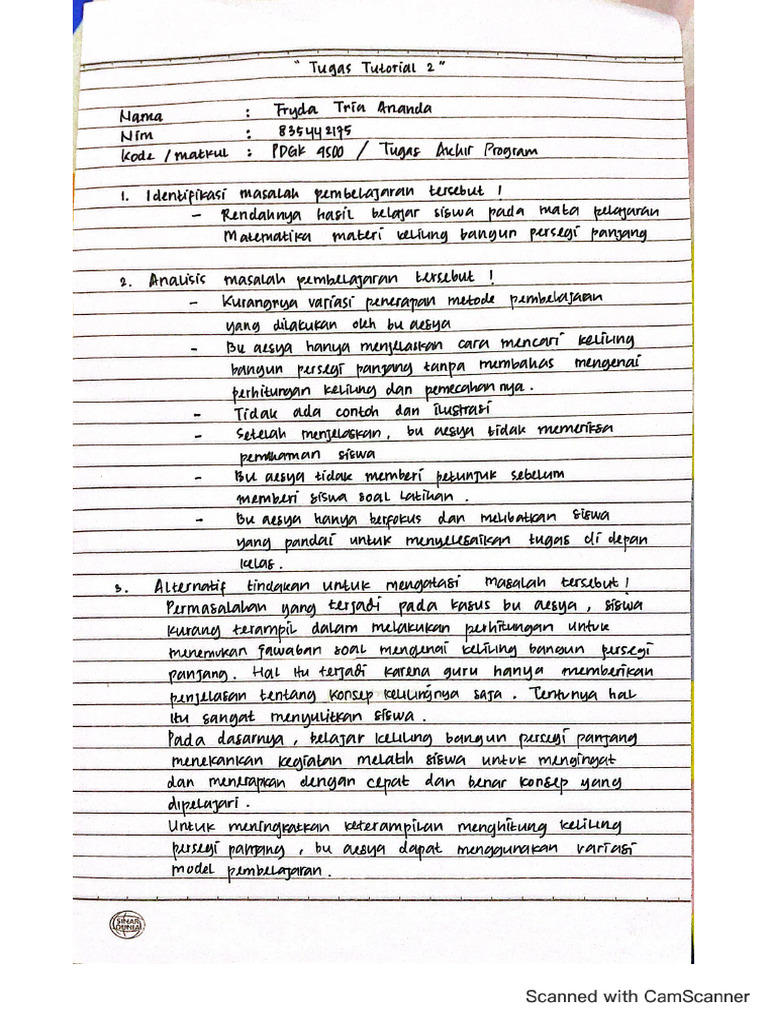 " Tugas Tutorial 2 "
Nama : Fryda Tria Ananda
Nim : 835442175
Kode / matkul : PDGK 4500 / Tugas Akhir Program
1. Identifikasi masalah pembelajaran tersebut !
- Rendahnya hasil belajar siswa pada mata pelajaran
Matematika materi keliling bangun persegi panjang
2. Analisis masalah pembelajaran tersebut !
- Kurangnya variasi penerapan metode pembelajaran
yang dilakukan oleh bu aesya
- Bu aesya hanya menjelaskan cara mencari keliling
bangun persegi panjang tanpa membahas mengenai
perhitungan keliling dan pemecahan nya.
- Tidak ada contoh dan ilustrasi
- Setelah menjelaskan, bu aesya tidak memeriksa
pemahaman siswa
- Bu aesya tidak memberi petunjuk sebelum
memberi siswa soal latihan.
- Bu aesya hanya berfokus dan melibatkan siswa
yang pandai untuk menyelesaikan tugas di depan
kelas.
3. Alternatif tindakan untuk mengatasi masalah tersebut !
Permasalahan yang terjadi pada kasus bu aesya, siswa
kurang terampil dalam melakukan perhitungan untuk
menemukan jawaban soal mengenai keliling bangun persegi
panjang. Hal itu terjadi karena guru hanya memberikan
penjelasan tentang konsep kelilingnya saja. Tentunya hal
itu sangat menyulitkan siswa.
Pada dasarnya, belajar keliling bangun persegi panjang
menekankan kegiatan melatih siswa untuk mengingat
dan menerapkan dengan cepat dan benar konsep yang
dipelajari.
Untuk meningkatkan keterampilan menghitung keliling
persegi panjang, bu aesya dapat menggunakan variasi
model pembelajaran.
SINAR
DUNIA
Scanned with CamScanner